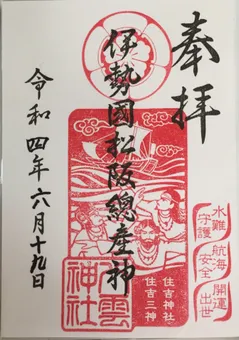 奉拝
伊勢國松阪總産神
令和四年六月十九日
水難守護
航海安全
開運出世
住吉神社
住吉三神
八雲神社